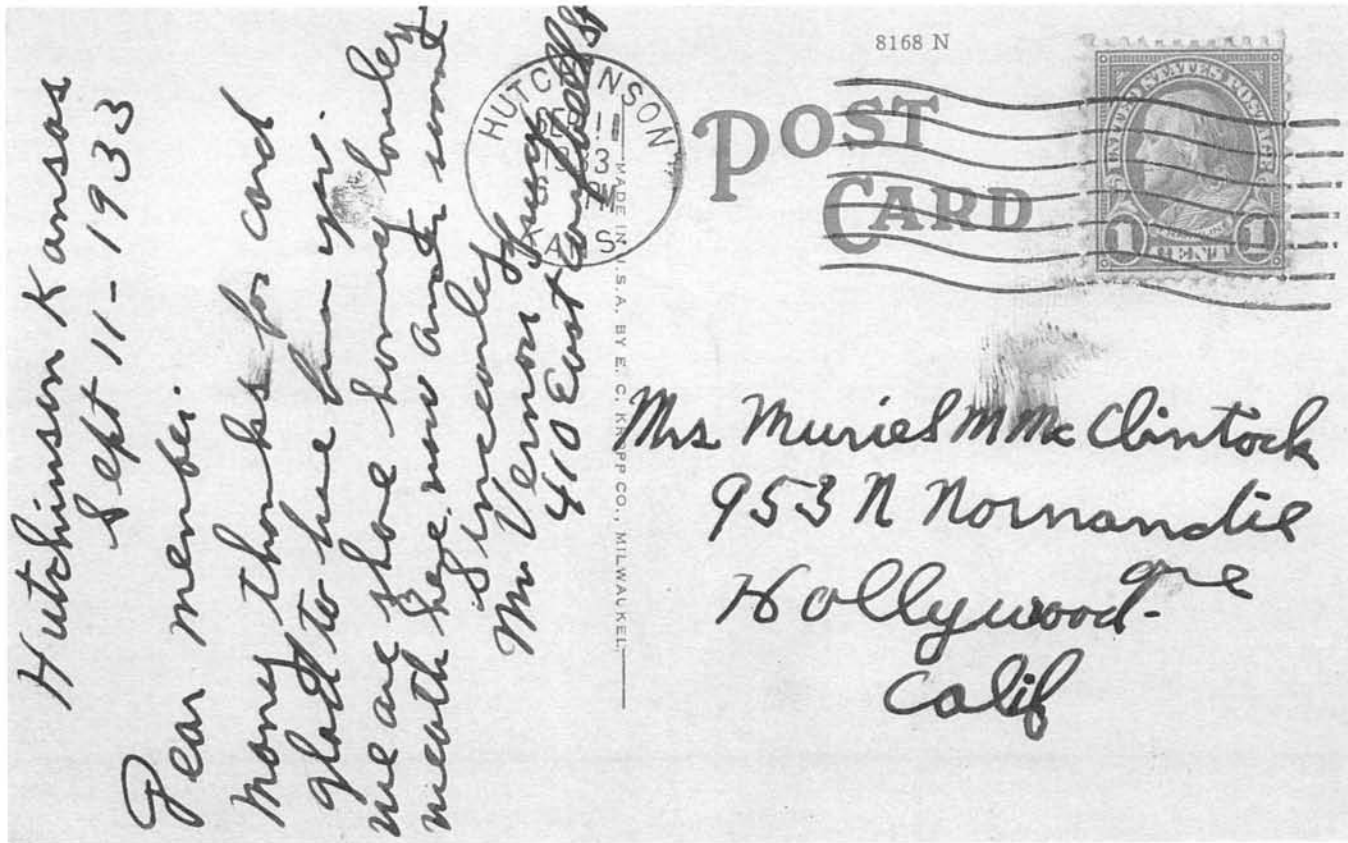 Hutchinson Kansas
Sept 11-1933
Dear member.
Many thanks for card
glad to have him you.
we are shore having lovely
weath here now and some
Sincearly
Mr Vernon
410 East
HUTCHINSON
SEP 11
1933
KANS
MADE IN U.S.A. BY E. C. KROPP CO., MILWAUKEE
8168 N
POST
CARD
UNITED STATES POSTAGE
1 CENT 1
Mrs Muriel M Mc Clintock
953 N Normandie
ave
Hollywood-
Calif